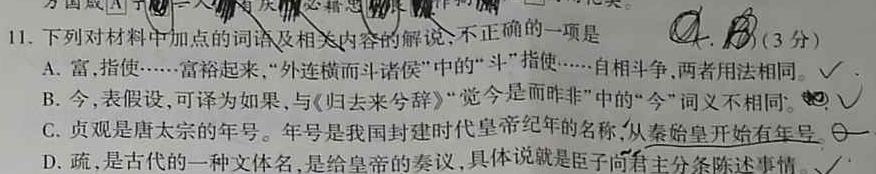 11. 下列对材料中加点的词语及相关内容的解说,不正确的一项是 (3分)
A. 富,指使……富裕起来,“外连横而斗诸侯”中的“斗”指使……自相斗争,两者用法相同。
B. 今,表假设,可译为如果,与《归去来兮辞》“觉今是而昨非”中的“今”词义不相同。
C. 贞观是唐太宗的年号。年号是我国封建时代皇帝纪年的名称,从秦始皇开始有年号。
D. 疏,是古代的一种文体名,是给皇帝的奏议,具体说就是臣子向君主分条陈述事情。